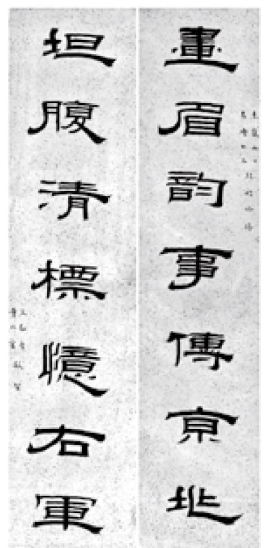 畫眉韵事傳京兆
坦腹清標憶右軍